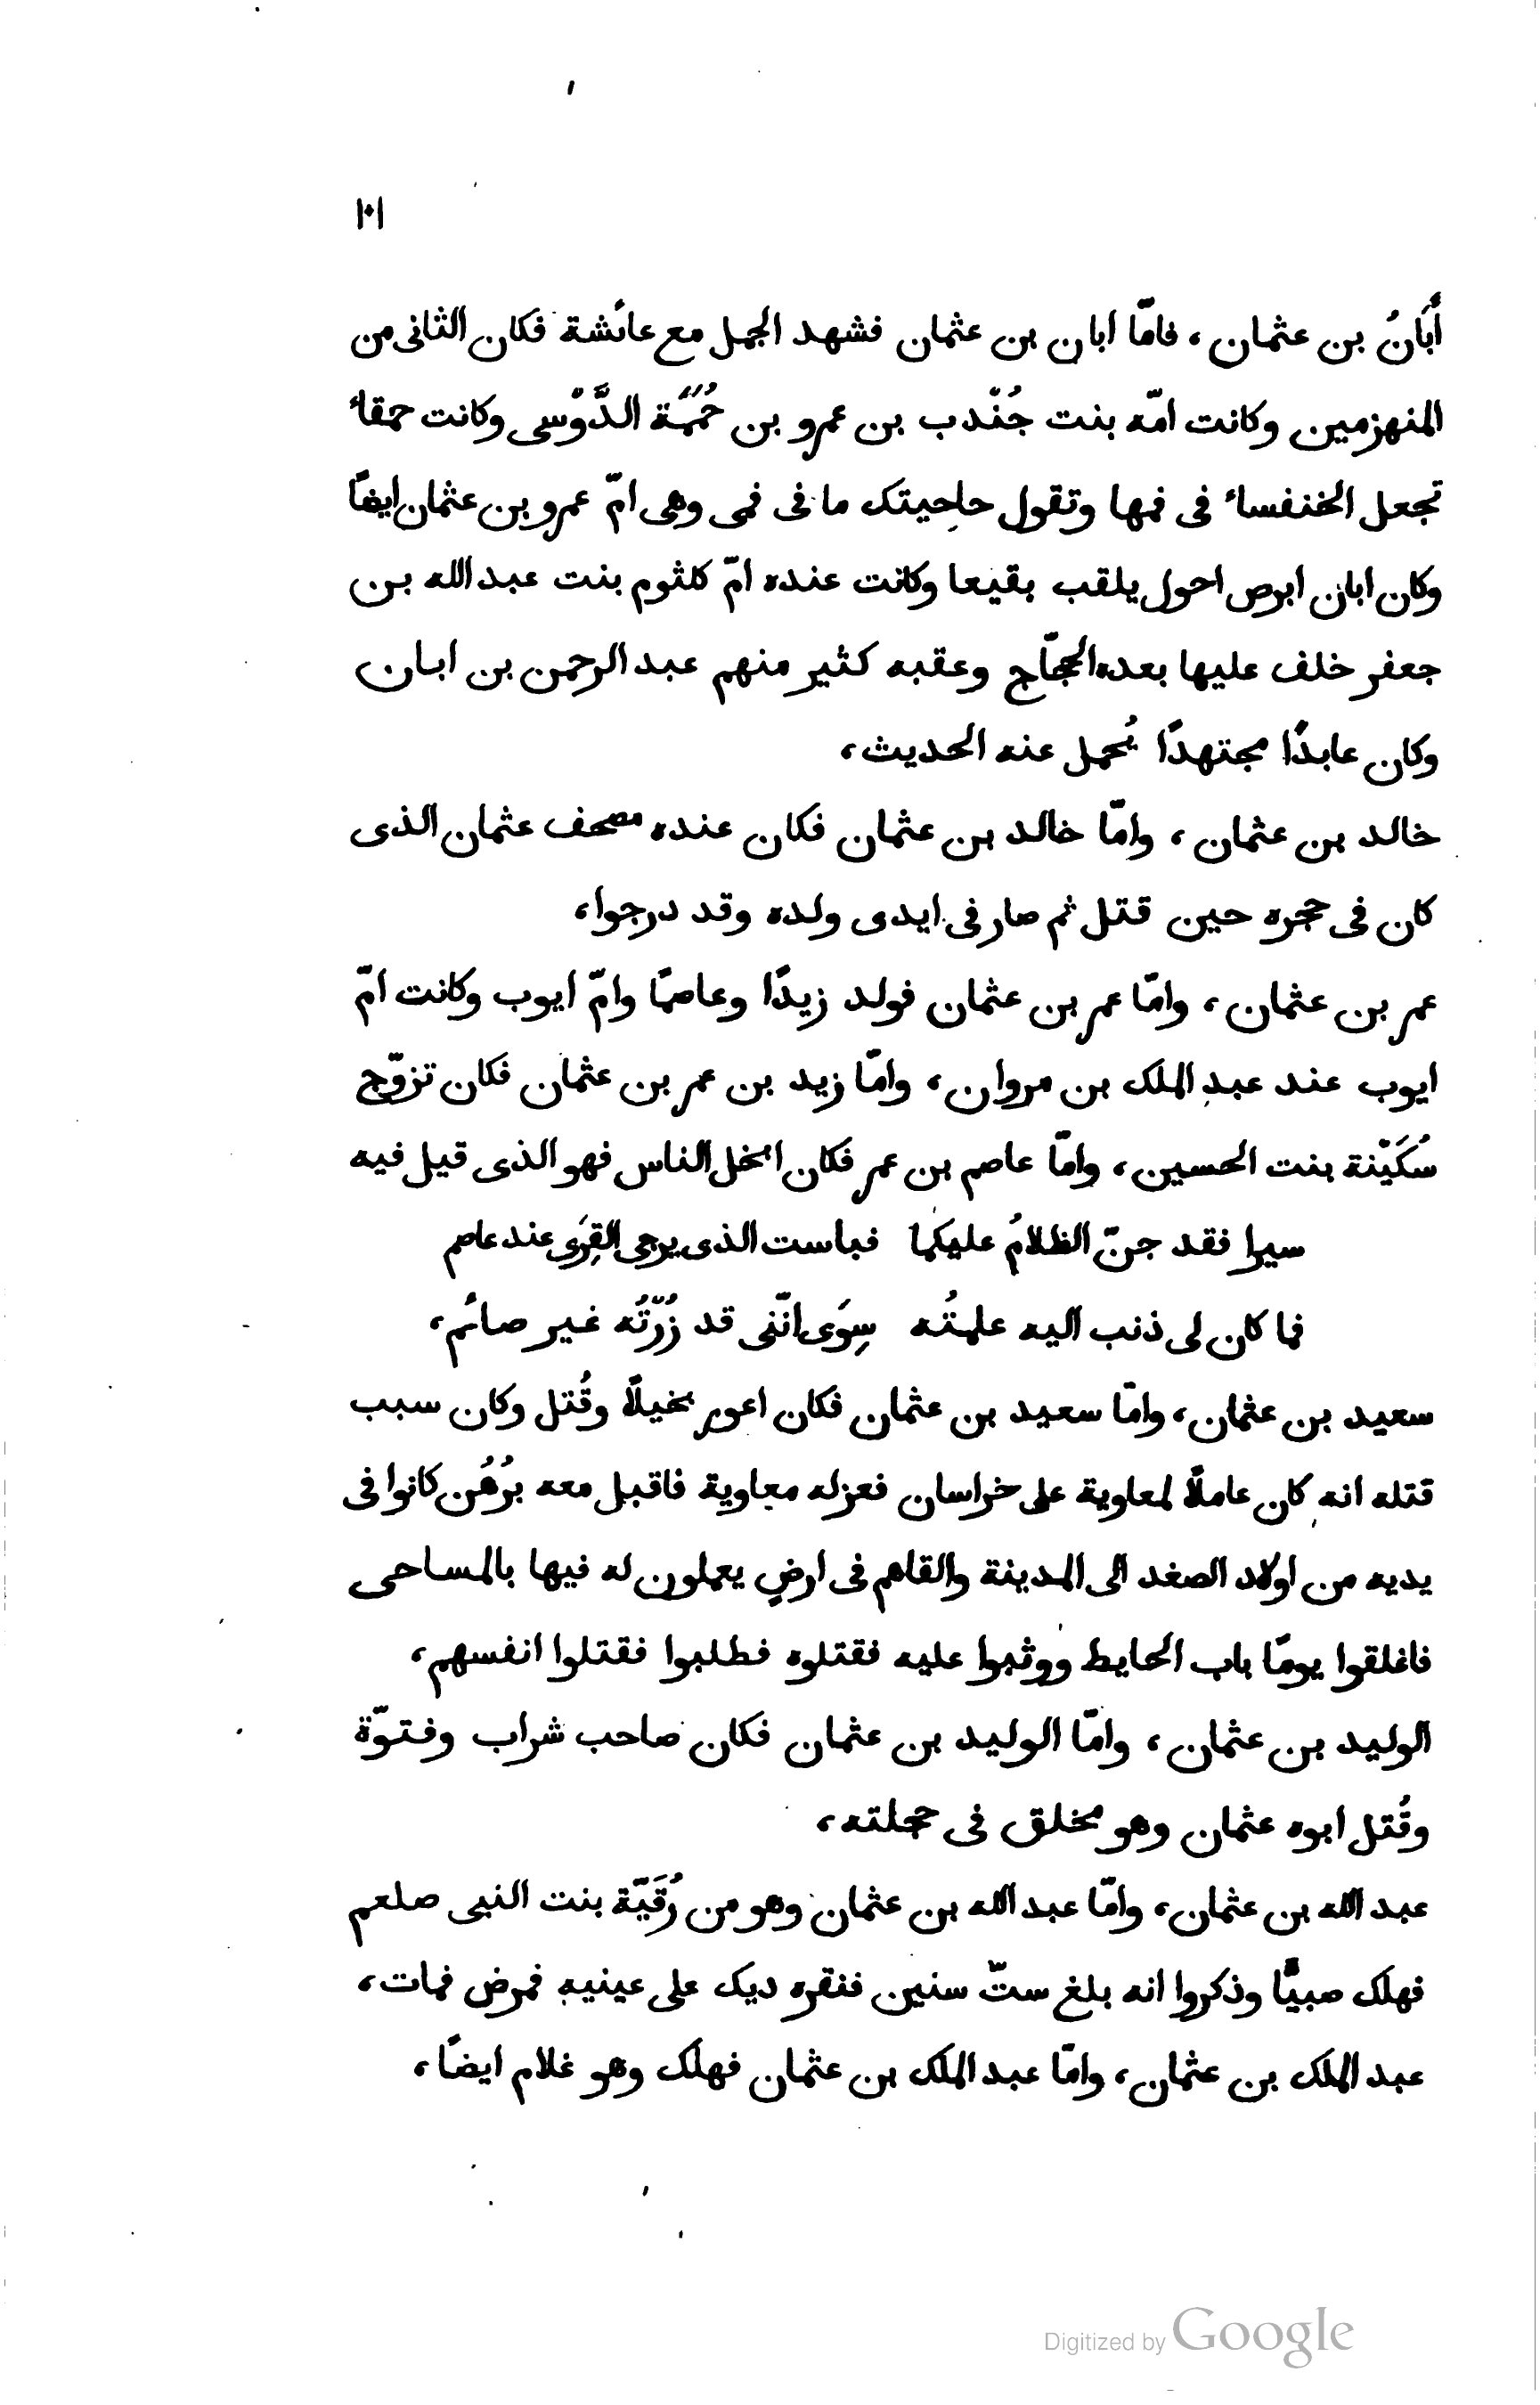 ١٠١
أَبَانُ بن عثمان، فامّا ابان بن عثمان فشهد الجمل مع عائشة فكان الثانى من
المنهزمين وكانت امّه بنت جُنْدب بن عمرو بن حُمَمَة الدَّوْسى وكانت حمقاء
تجعل الخنفساء فى فمها وتقول حاجيتك ما فى فمى وهى امّ عمرو بن عثمان ايضًا
وكان ابان ابرص احول يلقب بقيعا وكانت عنده امّ كلثوم بنت عبد الله بن
جعفر خلف عليها بعده الحجّاج وعقبه كثير منهم عبد الرحمن بن ابان
وكان عابدًا مجتهدًا يُحمل عنه الحديث،
خالد بن عثمان، وامّا خالد بن عثمان فكان عنده مصحف عثمان الذى
كان فى حجره حين قتل ثم صار فى ايدى ولده وقد درجوا،
عمر بن عثمان، وامّا عمر بن عثمان فولد زيدًا وعاصمًا وامّ ايوب وكانت امّ
ايوب عند عبد الملك بن مروان، وامّا زيد بن عمر بن عثمان فكان تزوّج
سُكَيْنة بنت الحسين، وامّا عاصم بن عمر فكان ابخل الناس فهو الذى قيل فيه
سيرا فقد جنّ الظلامُ عليكما فباست الذى يرجى القِرَى عند عاصم
فما كان لى ذنب اليه علمتُه سِوَى انّنى قد زُرْتُه غير صائم،
سعيد بن عثمان، وامّا سعيد بن عثمان فكان اعور بخيلًا وقُتل وكان سبب
قتله انه كان عاملًا لمعاوية على خراسان فعزله معاوية فاقبل معه برُهُن كانوا فى
يديه من اولاد الصغد الى المدينة والقاهم فى ارضٍ يعملون له فيها بالمساحى
فاغلقوا يومًا باب الحايط ووثبوا عليه فقتلوه فطلبوا فقتلوا انفسهم،
الوليد بن عثمان، وامّا الوليد بن عثمان فكان صاحب شراب وفتوّة
وقُتل ابوه عثمان وهو مخلق فى حجلته،
عبد الله بن عثمان، وامّا عبد الله بن عثمان وهو من رُقَيّة بنت النبى صلعم
فهلك صبيًّا وذكروا انه بلغ ستّ سنين فنقره ديك على عينيه فمرض فمات،
عبد الملك بن عثمان، وامّا عبد الملك بن عثمان فهلك وهو غلام ايضًا،
Digitized by Google